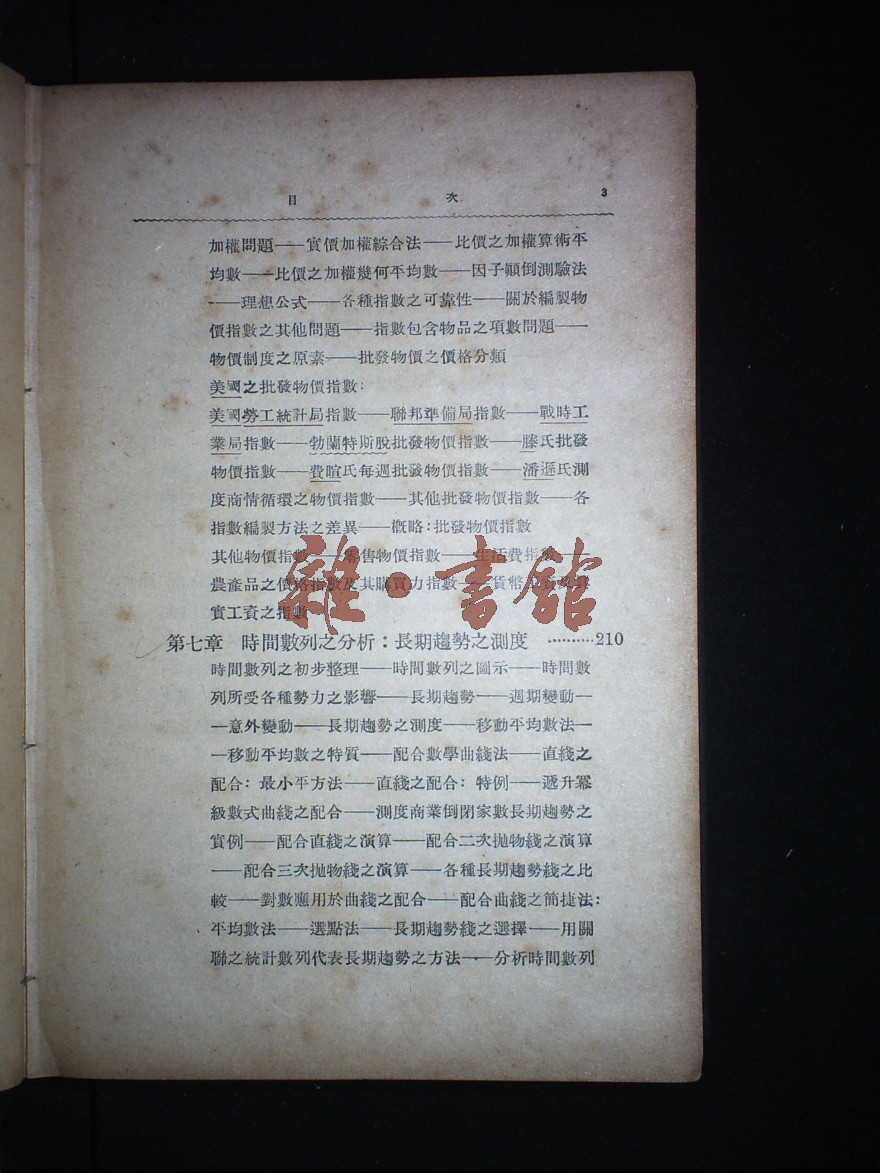 目 次 3
加權問題——實價加權綜合法——比價之加權算術平
均數——比價之加權幾何平均數——因子顚倒測驗法
——理想公式——各種指數之可靠性——關於編製物
價指數之其他問題——指數包含物品之項數問題——
物價制度之原素——批發物價之價格分類
美國之批發物價指數:
美國勞工統計局指數——聯邦準備局指數——戰時工
業局指數——勃蘭特斯脫批發物價指數——滕氏批發
物價指數——費暄氏每週批發物價指數——潘遜氏測
度商情循環之物價指數——其他批發物價指數——各
指數編製方法之差異——槪略:批發物價指數
其他物價指數——零售物價指數——生活費指數——
農產品之價格指數及其購買力指數——貨幣工資及眞
實工資之指數
雜·書館
第七章 時間數列之分析：長期趨勢之測度 ··········210
時間數列之初步整理——時間數列之圖示——時間數
列所受各種勢力之影響——長期趨勢——週期變動—
—意外變動——長期趨勢之測度——移動平均數法—
—移動平均數之特質——配合數學曲綫法——直綫之
配合：最小平方法——直綫之配合：特例——遞升冪
級數式曲綫之配合——測度商業倒閉家數長期趨勢之
實例——配合直綫之演算——配合二次拋物綫之演算
——配合三次拋物綫之演算——各種長期趨勢綫之比
較——對數應用於曲綫之配合——配合曲綫之簡捷法：
平均數法——選點法——長期趨勢綫之選擇——用關
聯之統計數列代表長期趨勢之方法——分析時間數列